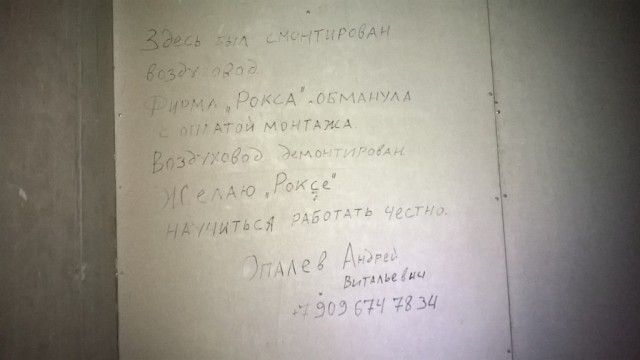 Здесь был смонтирован
воздуховод.
Фирма „Рокса" - обманула
с оплатой монтажа.
Воздуховод демонтирован.
Желаю „Роксе"
научиться работать честно.
Опалев Андрей
Витальевич
+7 909 674 78 34